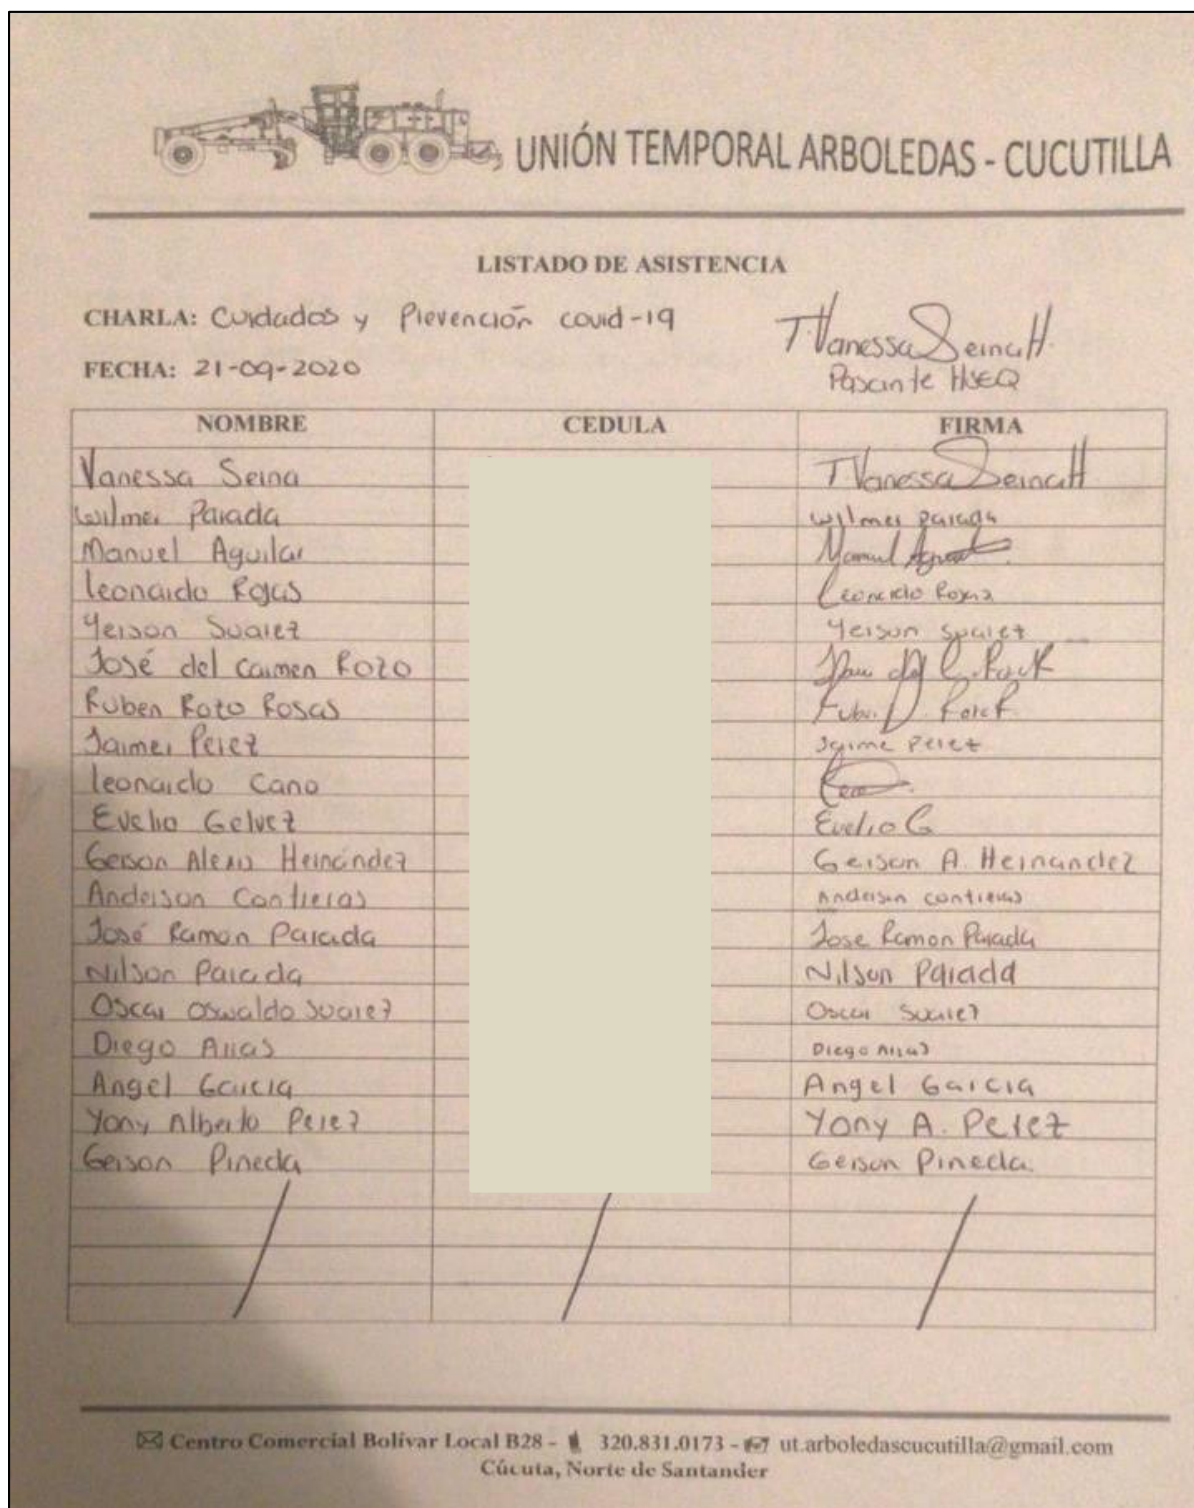 UNIÓN TEMPORAL ARBOLEDAS - CUCUTILLA
LISTADO DE ASISTENCIA
CHARLA: Cuidados y Prevención covid-19
T. Vanessa Serna H.
FECHA: 21-09-2020
Pasante HSEQ
NOMBRE CEDULA FIRMA
Vanessa Serna T Vanessa Serna H
Wilmer Parada wilmer parada
Manuel Aguilar Manuel
Leonardo Rojas Leonardo Rojas
Yeison Suarez Yeison suarez
José del Carmen Rozo
Ruben Rozo Rosas Ruben
Jaimer Perez Jaime Perez
Leonardo Cano
Evelio Gelvez Evelio G
Gerson Alexis Hernández Gerson A. Hernandez
Anderson Contreras Anderson contreras
José Ramon Parada Jose Ramon Parada
Nilson Parada Nilson Parada
Oscar Oswaldo Suarez Oscar Suarez
Diego Arias Diego Arias
Angel Garcia Angel Garcia
Yony Alberto Perez Yony A. Perez
Gerson Pineda Gerson Pineda.
Centro Comercial Bolívar Local B28 - 320.831.0173 - ut.arboledascucutilla@gmail.com
Cúcuta, Norte de Santander